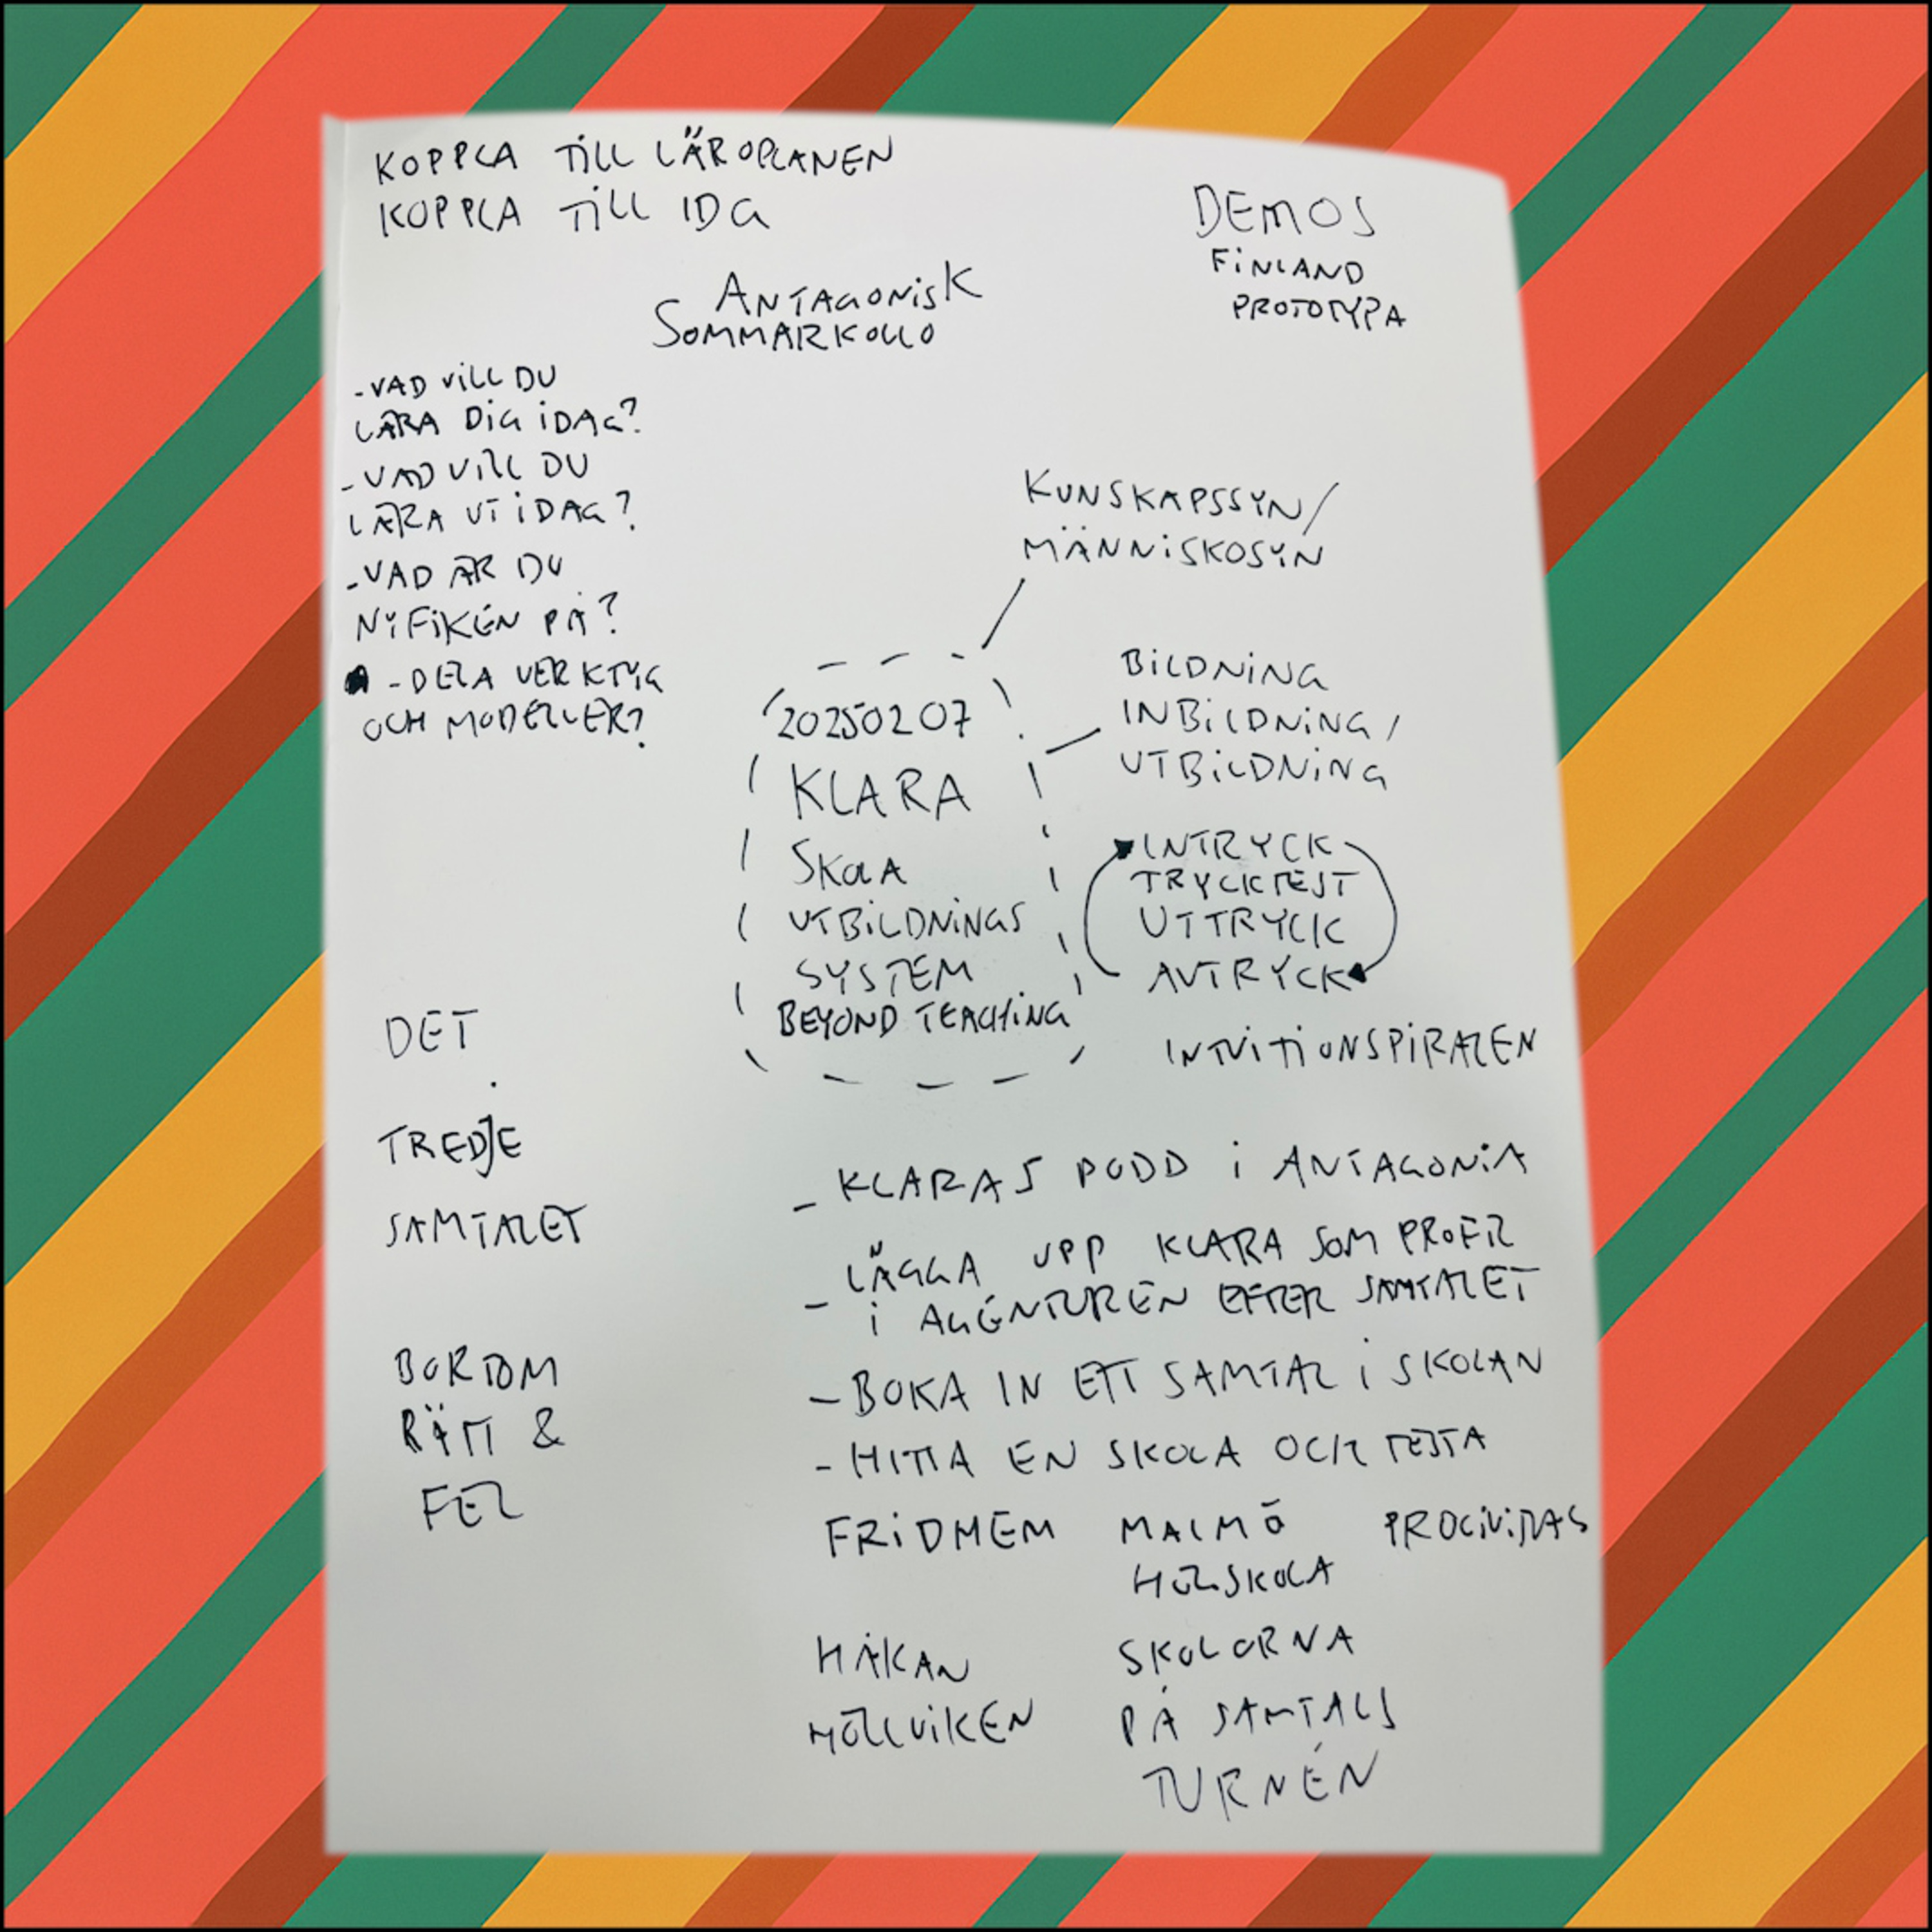 KOPPLA TILL LÄROPLANEN
KOPPLA TILL IDG
DEMOS
FINLAND
PROTOTYPA
ANTAGONISK
SOMMARKOLLO
- VAD VILL DU
LÄRA DIG IDAG?
- VAD VILL DU
LÄRA UT IDAG?
- VAD ÄR DU
NYFIKEN PÅ?
- DELA VERKTYG
OCH MODELLER?
KUNSKAPSSYN/
MÄNNISKOSYN
20250207
KLARA
SKOLA
UTBILDNINGS
SYSTEM
BEYOND TEACHING
BILDNING
INBILDNING/
UTBILDNING
INTRYCK
TRYCKTEST
UTTRYCK
AVTRYCK
INTUITIONSPIRALEN
DET
TREDJE
SAMTALET
BORTOM
RÄTT &
FEL
- KLARAS PODD I ANTAGONIA
- LÄGGA UPP KLARA SOM PROFIL
I AGENTUREN EFTER SAMTALET
- BOKA IN ETT SAMTAL I SKOLAN
- HITTA EN SKOLA OCH TESTA
FRIDHEM MALMÖ PROCIVITAS
HÖGSKOLA
HÅKAN
HÖLLVIKEN
SKOLORNA
PÅ SAMTALS
TURNÉN